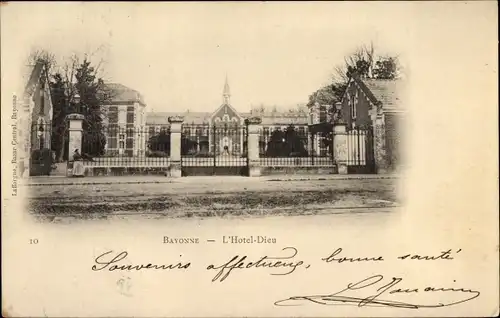 Lafforgue, Bazar Central, Bayonne
10
BAYONNE — L'Hotel-Dieu
Souvenirs affectueux, bonne santé